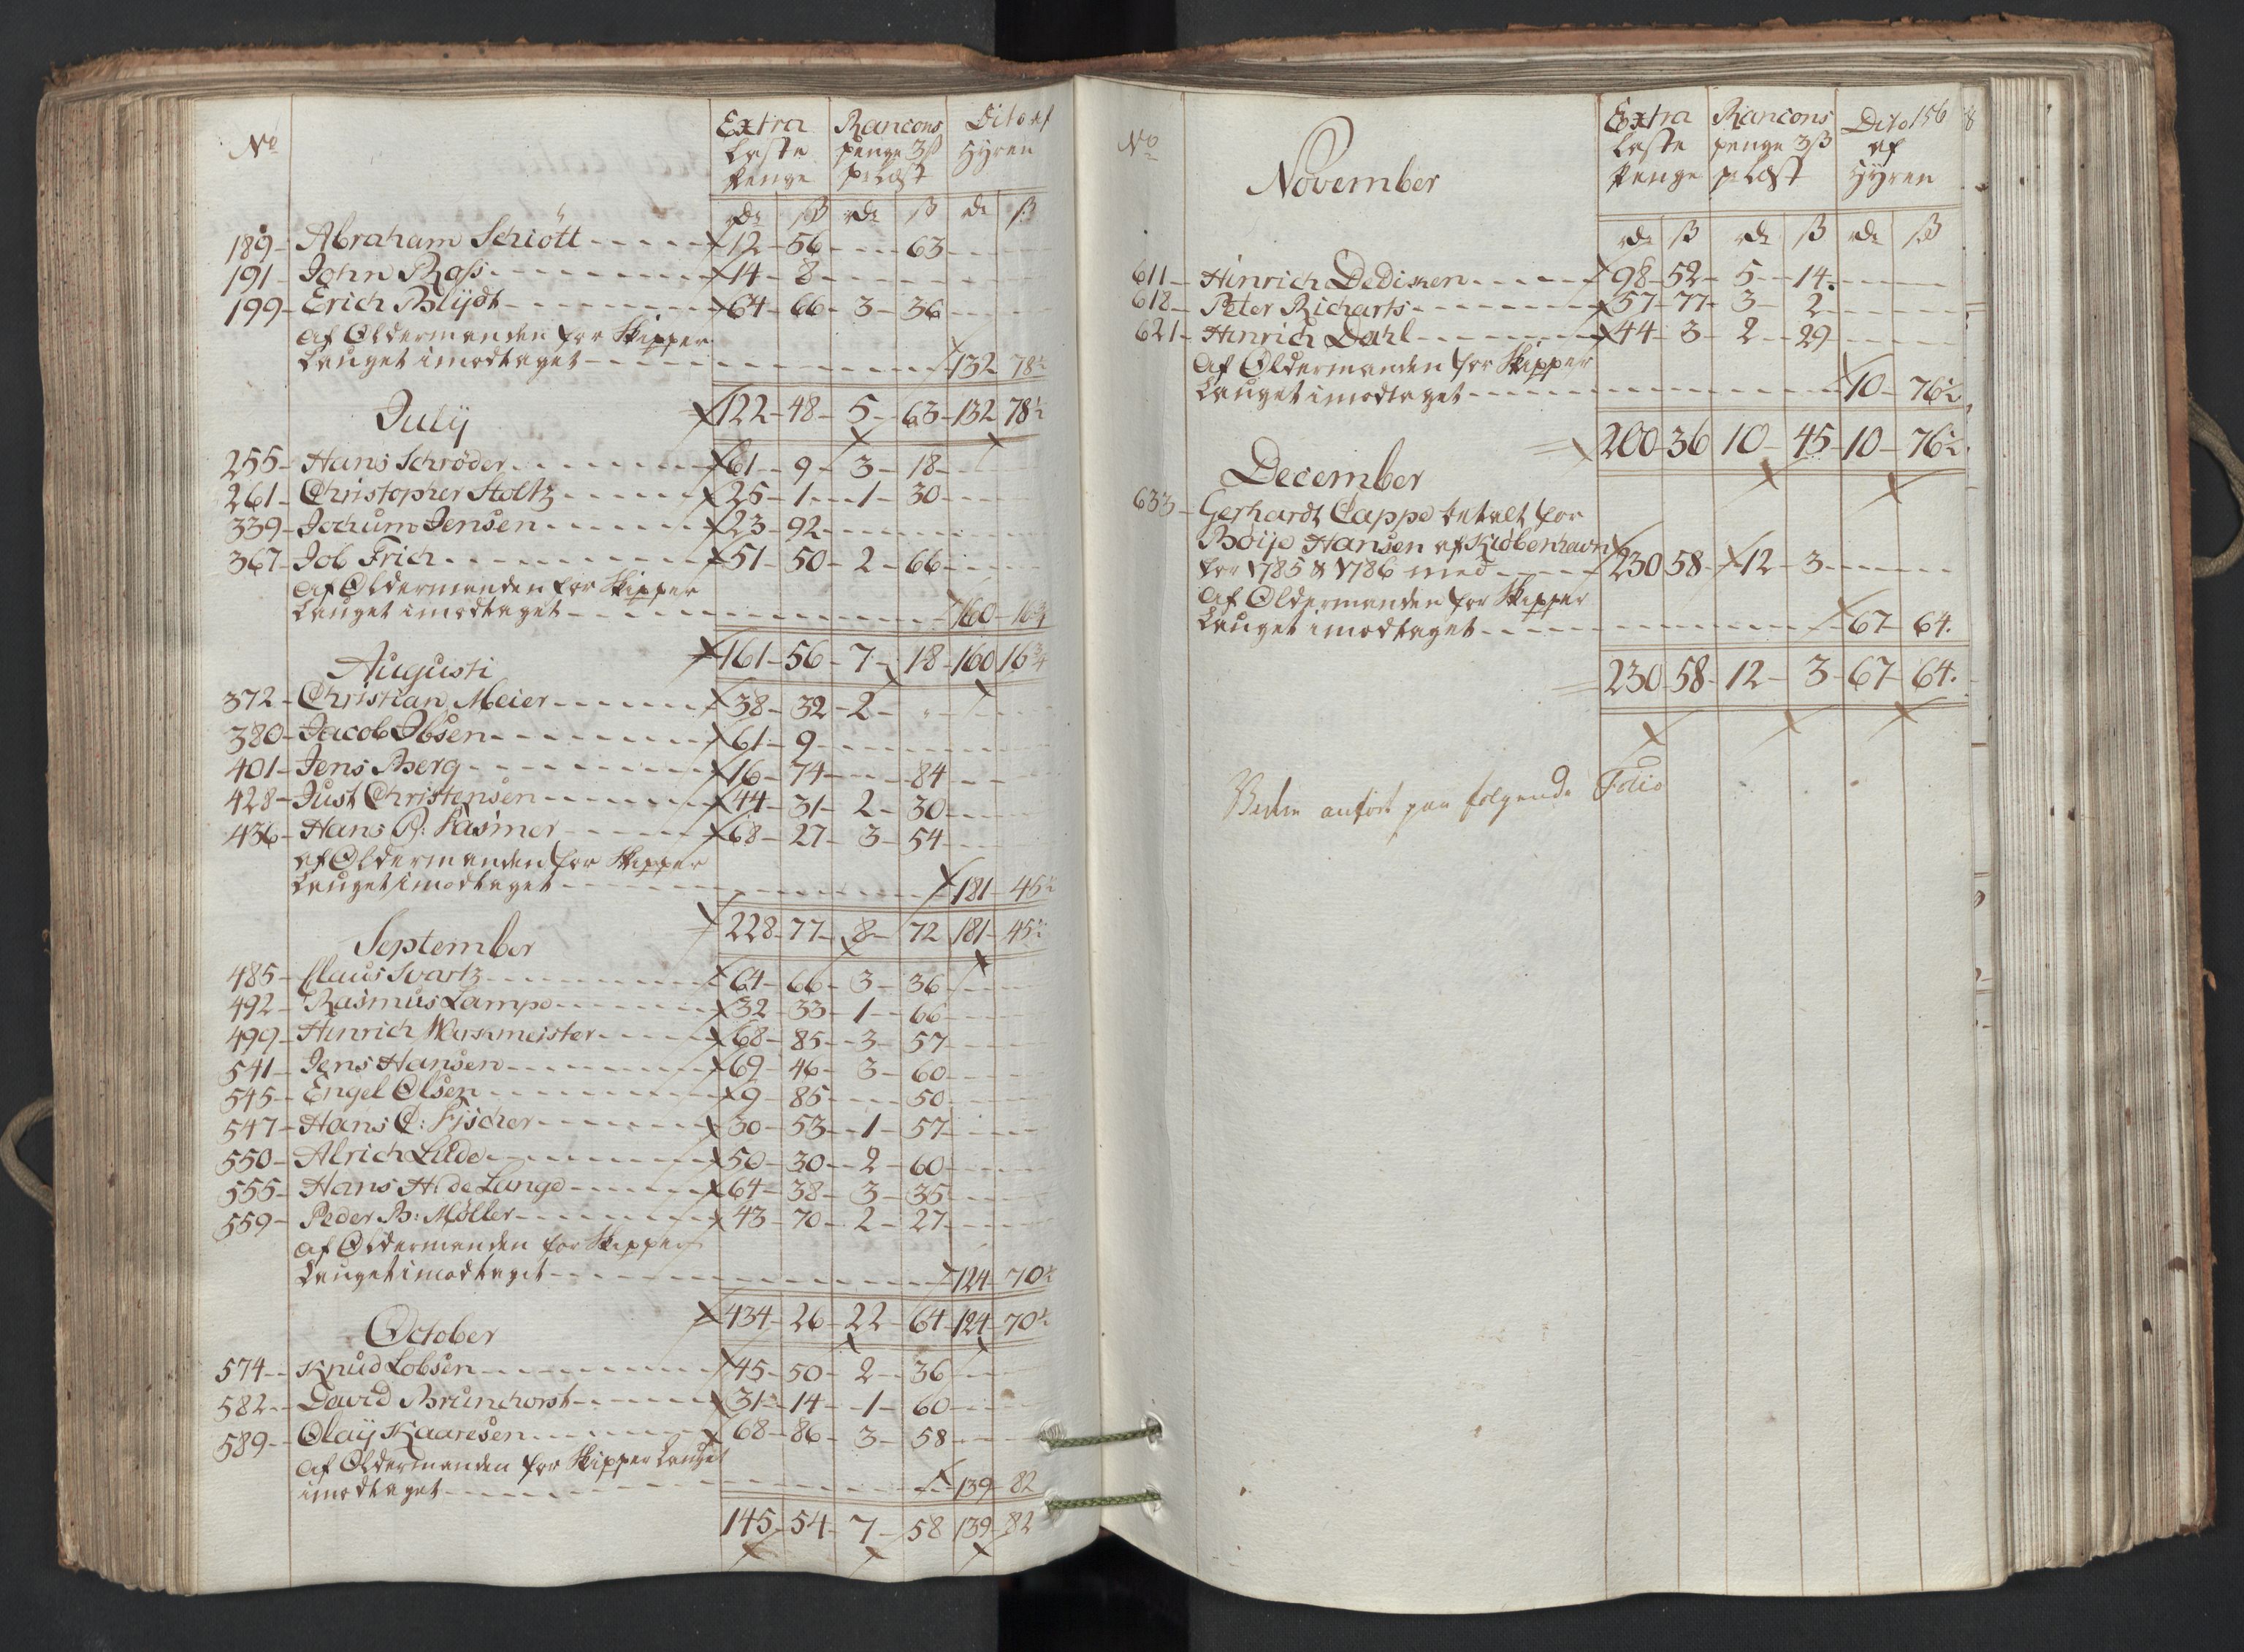 No
Extra Laste Penge | Rancons penge 3ß pr Læst | Dito af Hyren
rdr ß rdr ß rdr ß
189 - Abraham Schiött - 12 - 56 - - 63
191 - John Ross - 14 - 8
199 - Erich Blijdt - 64 - 66 - 3 - 36
af Oldermanden for Skipper
Lauget imodtaget - 132 78½
122 - 48 - 5 - 63 - 132 78½
Julij
255 - Hans Schrøder - 61 - 9 - 3 - 18
261 - Christopher Holtz - 25 - 1 - 1 - 30
339 - Jochum Jensen - 23 - 92
367 - Job Frich - 51 - 50 - 2 - 66
af Oldermanden for Skipper
Lauget imodtaget - 160 - 16¾
161 - 56 - 7 - 18 - 160 16¾
Augusti
372 - Christian Meier - 38 - 32 - 2 -
380 - Jacob Ibsen - 61 - 9
401 - Jens Berg - 16 - 74 - - 84
428 - Just Christensen - 44 - 31 - 2 - 30
436 - Hans P: Fasmer - 68 - 27 - 3 - 54
af Oldermanden for Skipper
Lauget imodtaget - 181 - 45½
228 - 77 - 8 - 72 181 - 45½
September
485 - Claus Svartz - 64 - 66 - 3 - 36
492 - Rasmus Lampe - 32 - 33 - 1 - 66
499 - Hinrich Waschmeister - 68 - 85 - 3 - 57
541 - Jens Hansen - 69 - 46 - 3 - 60
545 - Engel Olsen - 9 - 85 - - 50
547 - Hans C: Fischer - 30 - 53 - 1 - 57
550 - Alrich Lude - 50 - 30 - 2 - 60
555 - Hans H: de Lange - 64 - 38 - 3 - 35
559 - Peder B: Møller - 43 - 70 - 2 - 27
af Oldermanden for Skipper
Lauget imodtaget - 124 - 70½
434 - 26 - 22 - 64 - 124 - 70½
October
574 - Knud Lobsen - 45 - 50 - 2 - 36
582 - David Brunchorst - 31 - 14 - 1 - 60
589 - Olaij Kaaresen - 68 - 86 - 3 - 58
af Oldermanden for Skipper Lauget
imodtaget - 139 - 82
145 - 54 - 7 - 58 139 - 82
No
Extra Laste Penge | Rancons penge 3ß pr Læst | Dito af Hyren
156
November
rdr ß rdr ß rdr ß
611 - Hinrich Dedichen - 98 - 52 - 5 - 14
618 - Peter Richarts - 57 - 77 - 3 - 2
621 - Hinrich Dahl - 44 - 3 - 2 - 29
af Oldermanden for Skipper
Lauget imodtaget - 10 - 76½
200 36 10 - 45 - 10 - 76½
December
633 - Gerhardt Cappe betalt for
Böije Hansen af Kiöbenhavn
for 1785 & 1786 med - 230 58 - 12 - 3
af Oldermanden for Skipper
Lauget imodtaget - 67 - 64.
230 - 58 - 12 - 3 - 67 - 64.
anført paa følgende Folio